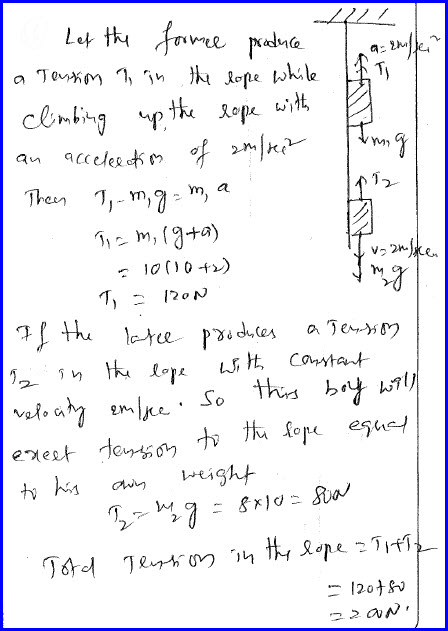 Let the former produce
a Tension T₁ in the rope while
climbing up the rope with
an acceleration of 2m/sec²
Then T₁ - m₁g = m₁a
T₁ = m₁(g+a)
= 10(10+2)
T₁ = 120N
a = 2m/sec²
T₁
m₁g
T₂
v = 2m/sec
m₂g
If the latter produces a Tension
T₂ in the rope with constant
velocity 2m/sec. So this boy will
exert tension to the rope equal
to his own weight
T₂ = m₂g = 8×10 = 80N
Total Tension in the rope = T₁+T₂
= 120+80
= 200N.